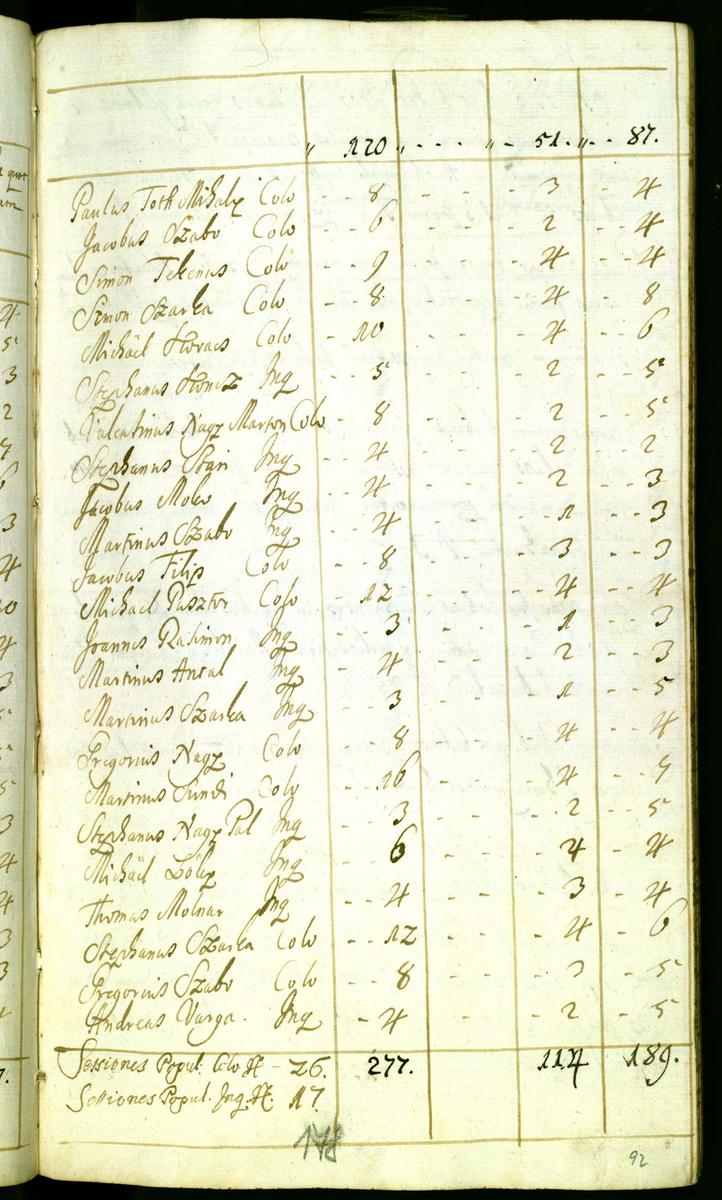 „ 120 „ - - - „ - 51. „ - - 87.
Paulus Toth Mihaly Colo 8 - - - 3 - 4
Jacobus Szabo Colo - 6 - - - 2 - - 4
Simon Tekenus Colo - - 9 - - - 4 - - 4
Simon Szarka Colo - - 8 - - - 4 - - 8
Michäel Kovacs Colo - 10 - - - 4 - - 6
Stephanus Koncz Inq - - 5 - - - 2 - - 5
Valentinus Nagy Marton Colo - 8 - - - 2 - - 5
Stephanus Inq - - 4 - - - 2 - - 2
Jacobus Inq - - 4 - - - 2 - - 3
Martinus Szabo Inq - - 4 - - - 1 - - 3
Jacobus Filip Colo - - 8 - - - 3 - - 3
Michael Pasztor Colo - - 12 - - - 4 - - 4
Joannes Inq - - 3 - - - 1 - - 3
Martinus Antal Inq - - 4 - - - 2 - - 3
Martinus Szarka Inq - - 3 - - - 1 - - 5
Gregorius Nagy Colo - 8 - - - 4 - - 4
Martinus Colo - - 16 - - - 4 - - 7
Stephanus Nagy Pal Inq - - 3 - - - 2 - - 5
Michäel Inq - - 6 - - - 4 - - 4
Thomas Molnar Inq - - 4 - - - 3 - - 4
Stephanus Szarka Colo - - 12 - - - 4 - 6
Gregorius Szabo Colo - - 8 - - - 3 - 5
Andreas Varga. Inq - 4 - - - 2 - 5
Sessiones Popul. Colo H - 26. 277. 114 189.
Sessiones Popul. Inq. H. 17
178
92